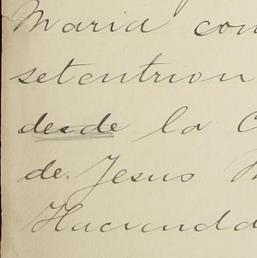 Maria con
setentrion
desde la C
de Jesus M
Hacienda